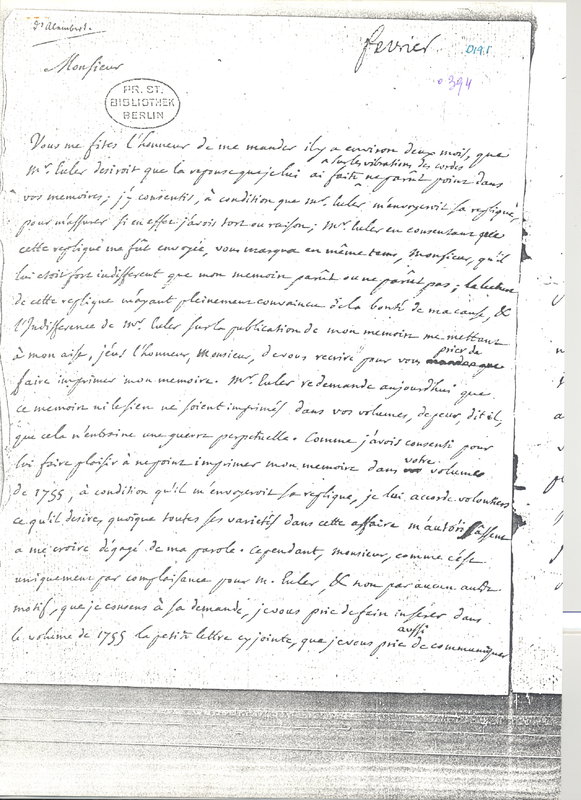 d'Alembert.
fevrier
0195
394
Monsieur
PR. ST.
BIBLIOTHEK
BERLIN
Vous me fites l'honneur de me mander il y a environ deux mois, que
Mr. Euler desiroit que la reponse que je lui ai faite
sur les vibrations des cordes
ne parût point dans
vos memoires; j'y consentis, à condition que Mr. Euler m'envoyeroit sa replique,
pour m'assurer si en effet j'avois tort ou raison; Mr. Euler en consentant que
cette replique me fût envoyée, vous marqua en même tems, Monsieur, qu'il
lui etoit fort indifferent que mon memoire parût ou ne parût pas; la lecture
de cette replique m'ayant pleinement convaincu de la bonté de ma cause, &
l'Indifference de Mr. Euler sur la publication de mon memoire me mettant
à mon aise, j'eus l'honneur, Monsieur, de vous recrire pour vous prier de
faire imprimer mon memoire. Mr. Euler redemande aujourdhui que
ce memoire ni le sien ne soient imprimés dans vos volumes, de peur, dit il,
que cela n'entraine une guerre perpetuelle. Comme j'avois consenti pour
lui faire plaisir à ne point imprimer mon memoire dans votre volume
de 1755, à condition qu'il m'envoyeroit sa replique, je lui accorde volontiers
ce qu'il desire, quoique toutes ses varietés dans cette affaire m'autorisassent
a me croire dégagé de ma parole. Cependant, Monsieur, comme c'est
uniquement par complaisance pour M. Euler, & non par aucun autre
motif, que je consens à sa demande, je vous prie de faire inserer dans
le volume de 1755 la petite lettre cy jointe, que je vous prie aussi de communiquer